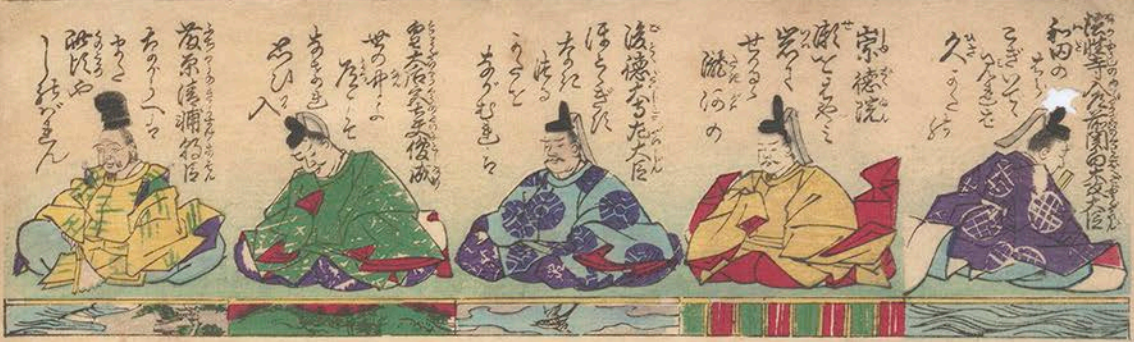 法性寺入道前関白太政大臣
和田の
はら
こぎいでて
みれば
久かたの
崇徳院
瀬をはやミ
岩に
せかるる
瀧河の
後徳大寺左大臣
ほととぎす
なき
つる
かたを
ながむれば
皇太后宮大夫俊成
世の中よ
道こそ
なけれ
思ひ入
藤原清輔朝臣
ながらへば
また
此比や
しのばれん